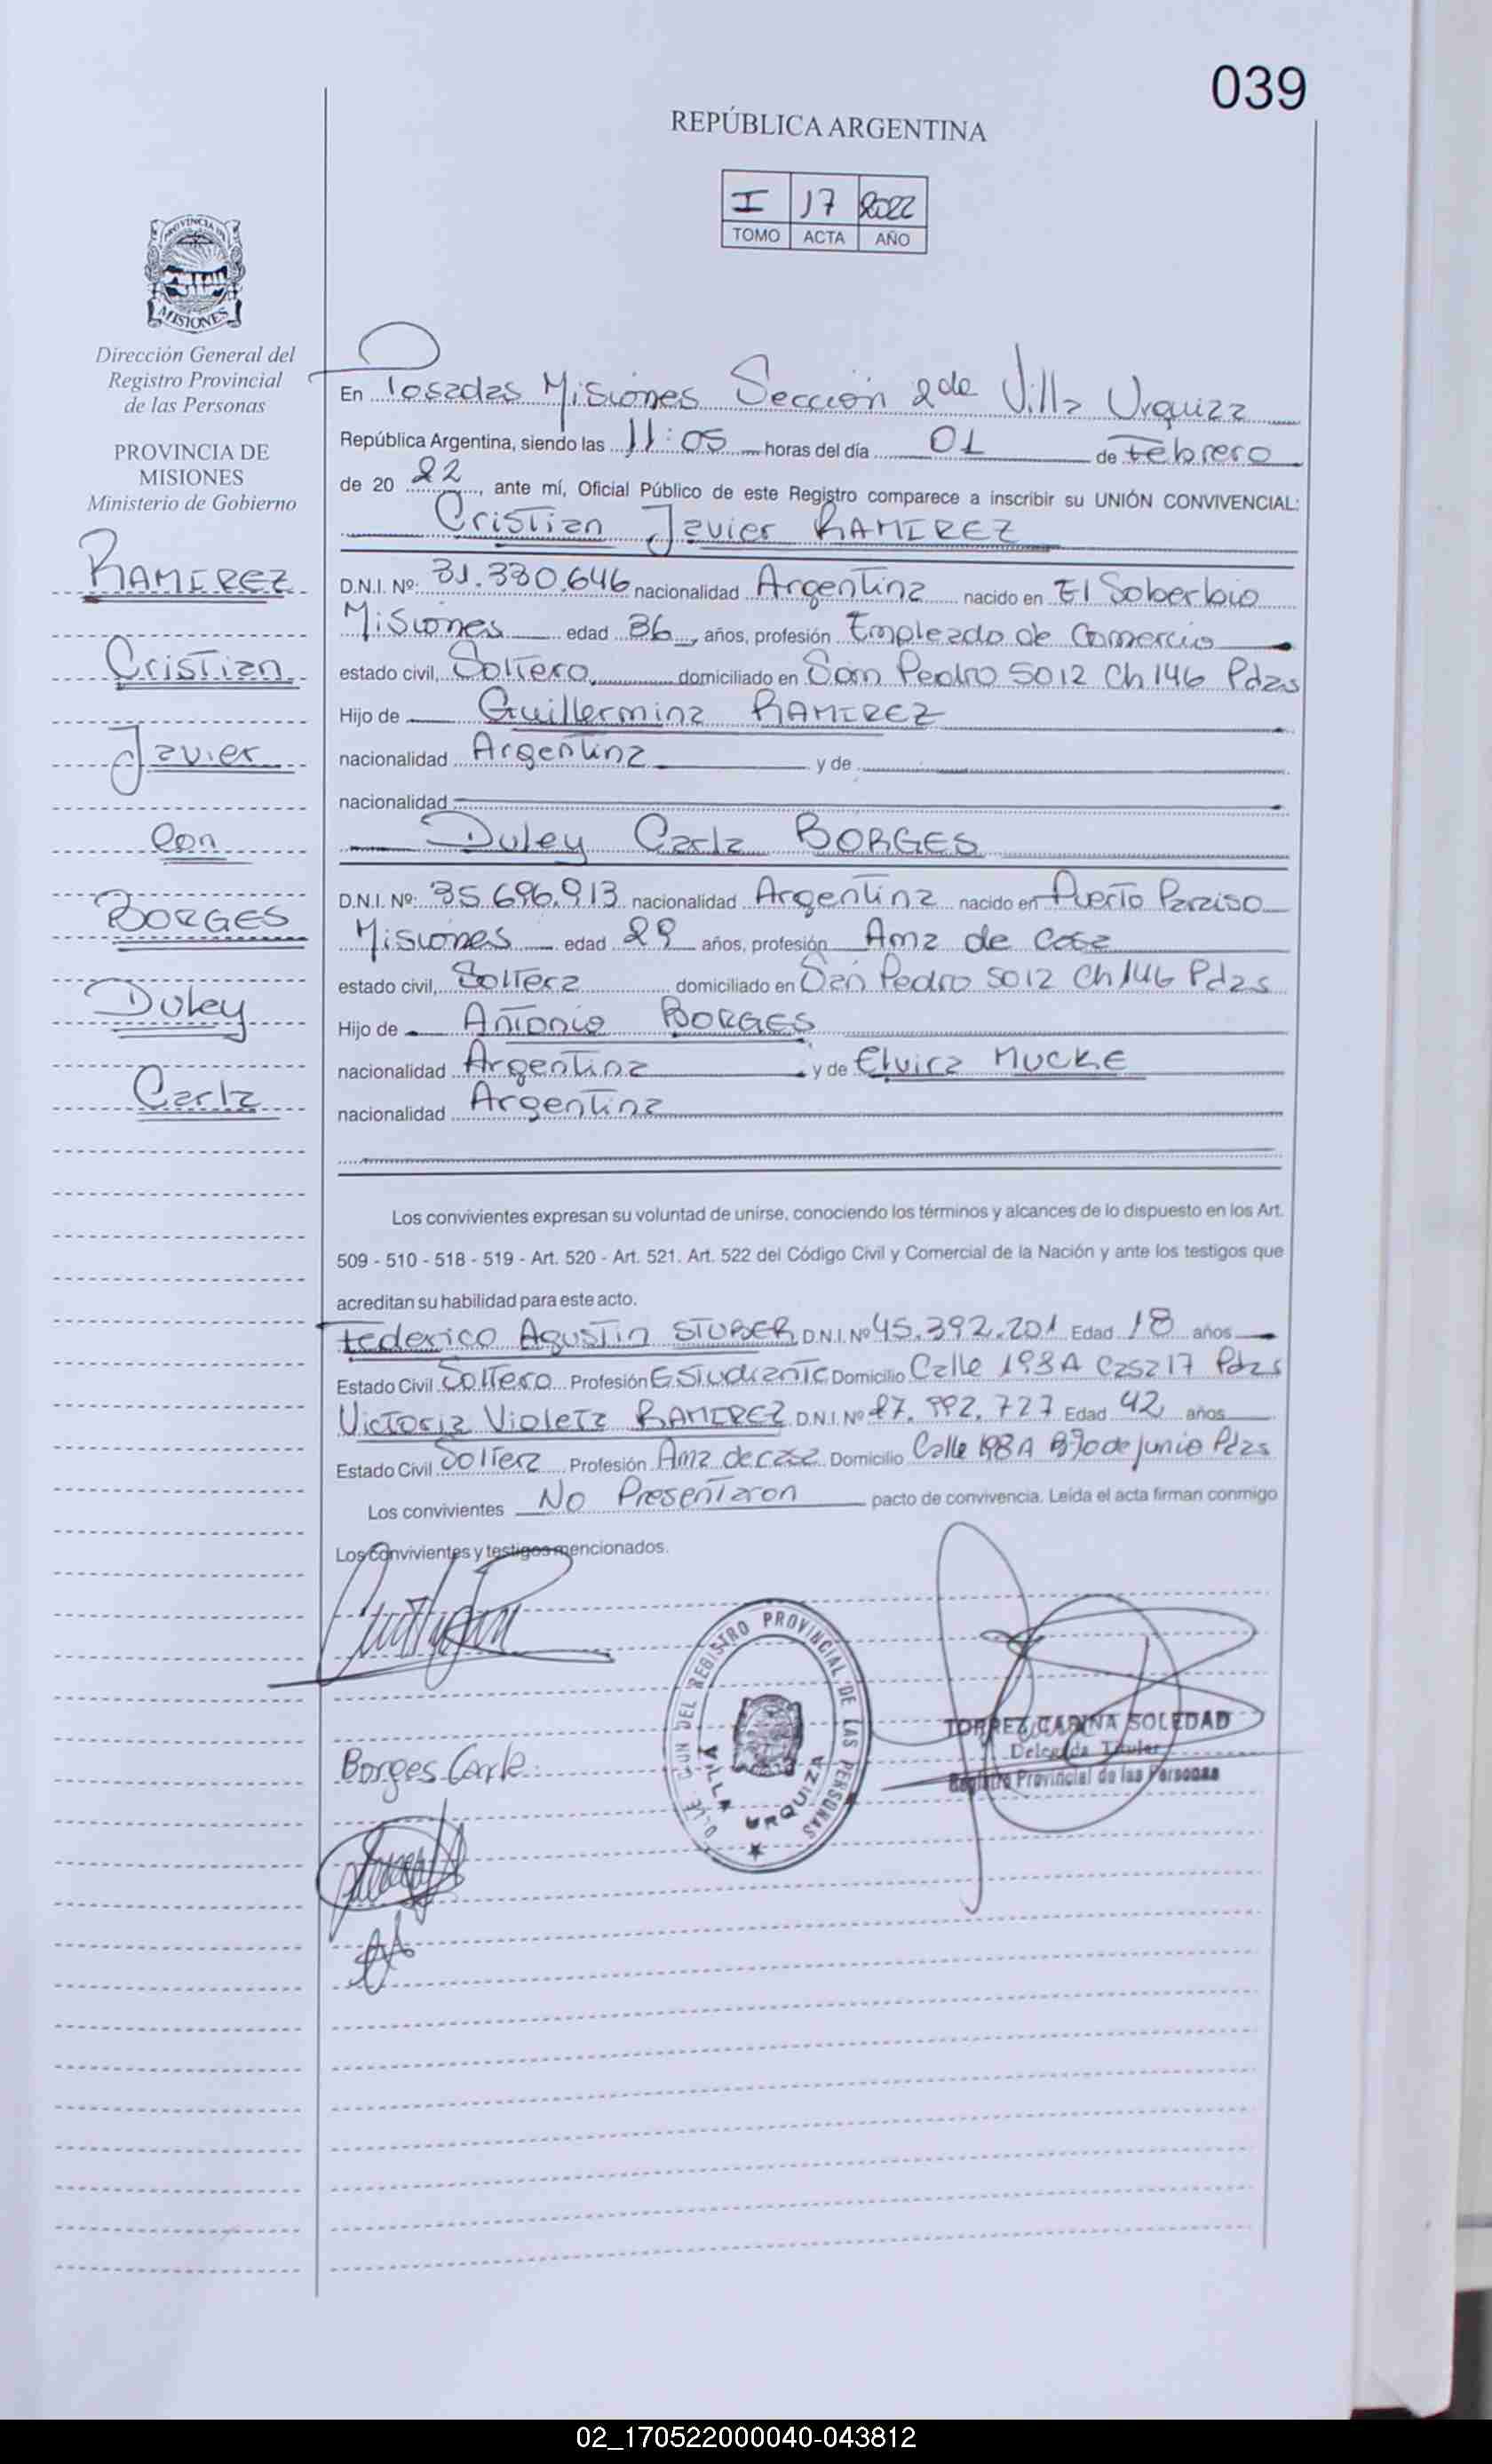 039
REPÚBLICA ARGENTINA
I 17 2022
TOMO ACTA AÑO
PROVINCIA DE
MISIONES
Dirección General del
Registro Provincial
de las Personas
PROVINCIA DE
MISIONES
Ministerio de Gobierno
RAMIREZ
Cristian
Javier
Con
BORGES
Duley
Carla
En Posadas Misiones Sección 2da Villa Urquiza
República Argentina, siendo las 11:05 horas del día 01 de Febrero
de 20 22, ante mí, Oficial Público de este Registro comparece a inscribir su UNIÓN CONVIVENCIAL:
Cristian Javier RAMIREZ
D.N.I. Nº: 31.380.646 nacionalidad Argentina nacido en El Soberbio
Misiones edad 36, años, profesión Empleado de Comercio
estado civil, Soltero domiciliado en San Pedro 5012 Ch 146 Pdas
Hijo de Guillermina RAMIREZ
nacionalidad Argentina y de
nacionalidad
Duley Carla BORGES
D.N.I. Nº: 35.696.913 nacionalidad Argentina nacido en Puerto Paraiso
Misiones edad 29 años, profesión Ama de casa
estado civil, Soltera domiciliado en San Pedro 5012 Ch 146 Pdas
Hijo de Antonio BORGES
nacionalidad Argentina y de Elvira MUCKE
nacionalidad Argentina
Los convivientes expresan su voluntad de unirse, conociendo los términos y alcances de lo dispuesto en los Art.
509 - 510 - 518 - 519 - Art. 520 - Art. 521. Art. 522 del Código Civil y Comercial de la Nación y ante los testigos que
acreditan su habilidad para este acto.
Federico Agustin STUBER D.N.I. Nº 45.392.201 Edad 18 años
Estado Civil Soltero Profesión Estudiante Domicilio Calle 198A casa 17 Pdas
Victoria Violeta RAMIREZ D.N.I. Nº 27.992.727 Edad 42 años
Estado Civil Soltera Profesión Ama de casa Domicilio Calle 198A de junio Pdas
Los convivientes No Presentaron pacto de convivencia. Leída el acta firman conmigo
Los convivientes y testigos mencionados.
DEL REGISTRO PROVINCIAL DE LAS PERSONAS
VILLA URQUIZA
TORREZ CARINA SOLEDAD
Delegada Titular
Registro Provincial de las Personas
Borges Carla
02_170522000040-043812